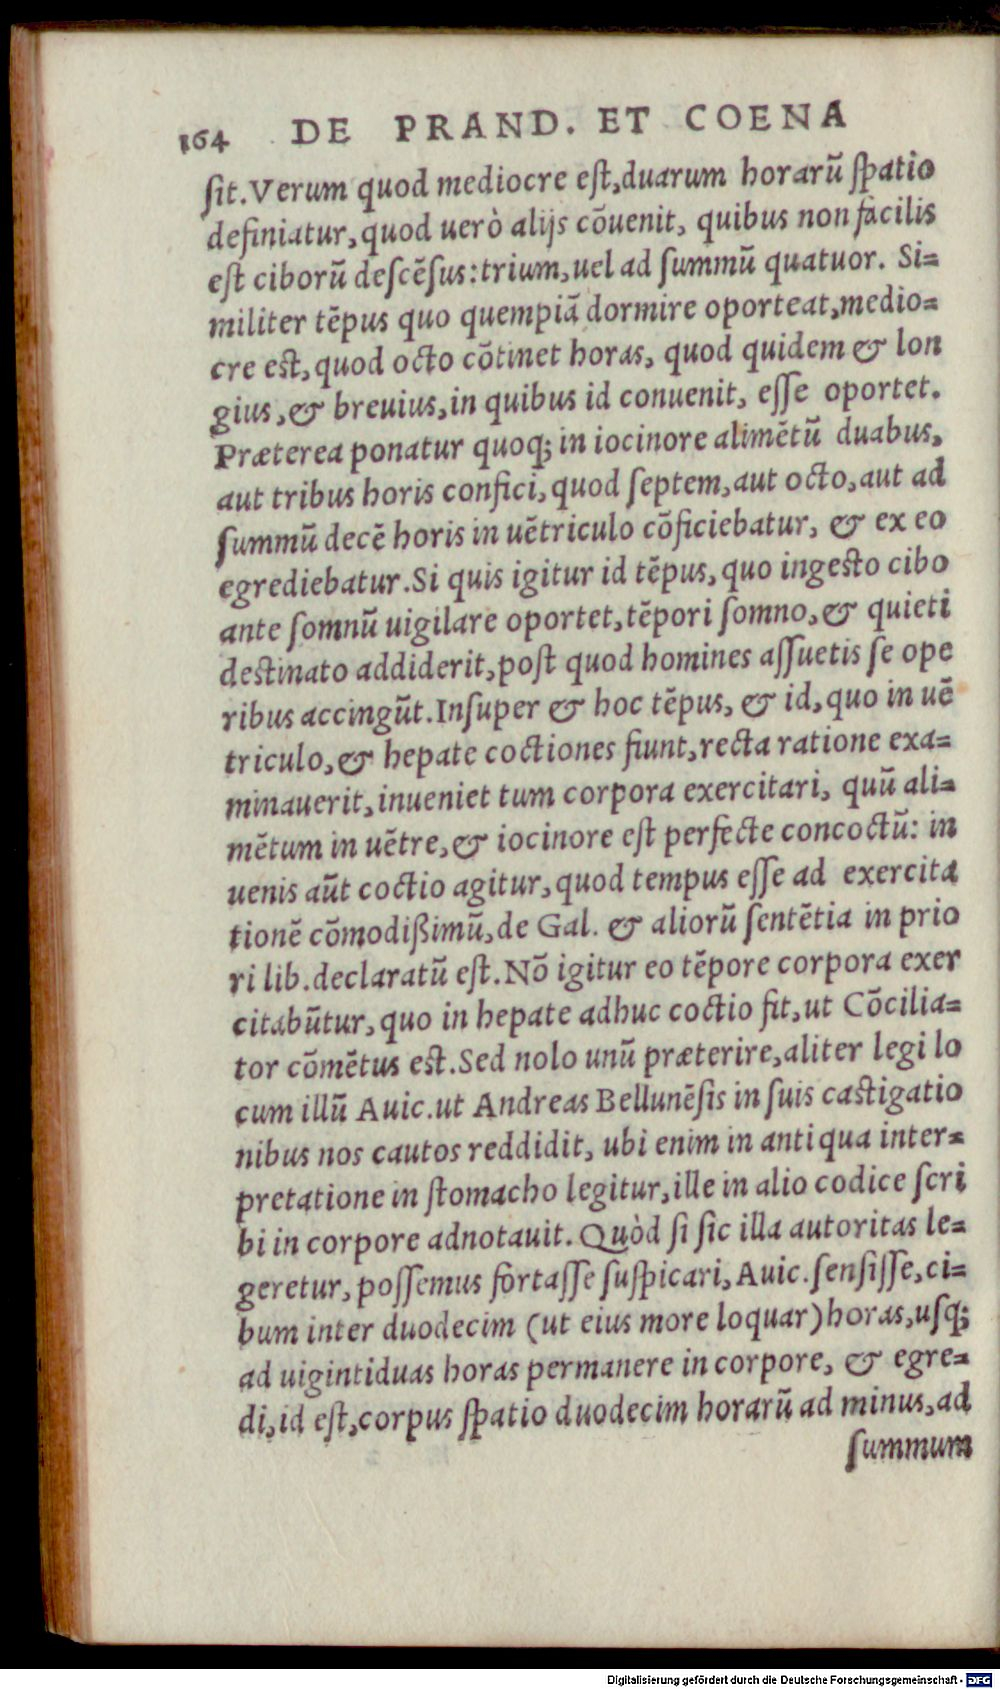 164 DE PRAND. ET COENA
ſit. Verum quod mediocre eſt, duarum horarũ ſpatio
definiatur, quod uerò alijs cõuenit, quibus non facilis
eſt ciborũ deſcẽſus: trium, uel ad ſummũ quatuor. Si=
militer tẽpus quo quempiã dormire oporteat, medio=
cre eſt, quod octo cõtinet horas, quod quidem & lon
gius, & breuius, in quibus id conuenit, eſſe oportet.
Præterea ponatur quoq; in iocinore alimẽtũ duabus,
aut tribus horis confici, quod ſeptem, aut octo, aut ad
ſummũ decẽ horis in uẽtriculo cõficiebatur, & ex eo
egrediebatur. Si quis igitur id tẽpus, quo ingeſto cibo
ante ſomnũ uigilare oportet, tẽpori ſomno, & quieti
deſtinato addiderit, poſt quod homines aſſuetis ſe ope
ribus accingũt. Inſuper & hoc tẽpus, & id, quo in uẽ
triculo, & hepate coctiones fiunt, recta ratione exa=
minauerit, inueniet tum corpora exercitari, quũ ali=
mẽtum in uẽtre, & iocinore eſt perfecte concoctũ: in
uenis aũt coctio agitur, quod tempus eſſe ad exercita
tionẽ cõmodißimũ, de Gal. & aliorũ ſentẽtia in prio
ri lib. declaratũ eſt. Nõ igitur eo tẽpore corpora exer
citabũtur, quo in hepate adhuc coctio fit, ut Cõcilia=
tor cõmẽtus eſt. Sed nolo unũ præterire, aliter legi lo
cum illũ Auic. ut Andreas Bellunẽſis in ſuis caſtigatio
nibus nos cautos reddidit, ubi enim in antiqua inter=
pretatione in ſtomacho legitur, ille in alio codice ſcri
bi in corpore adnotauit. Quòd ſi ſic illa autoritas le=
geretur, poſſemus fortaſſe ſuſpicari, Auic. ſenſiſſe, ci=
bum inter duodecim (ut eius more loquar) horas, uſq;
ad uigintiduas horas permanere in corpore, & egre=
di, id eſt, corpus ſpatio duodecim horarũ ad minus, ad
ſummum
Digitalisierung gefördert durch die Deutsche Forschungsgemeinschaft - DFG